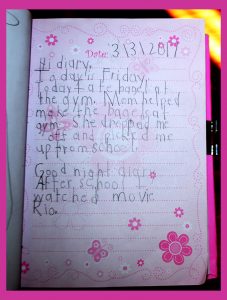 Date: 3/3/2017
Hi diary,
Today is Friday.
Today I ate bagel at
the gym. Mom helped
make the bagel at
gym. She dropped me
off and picked me
up from school.
Good night diary
After school I
watched movie
Rio.